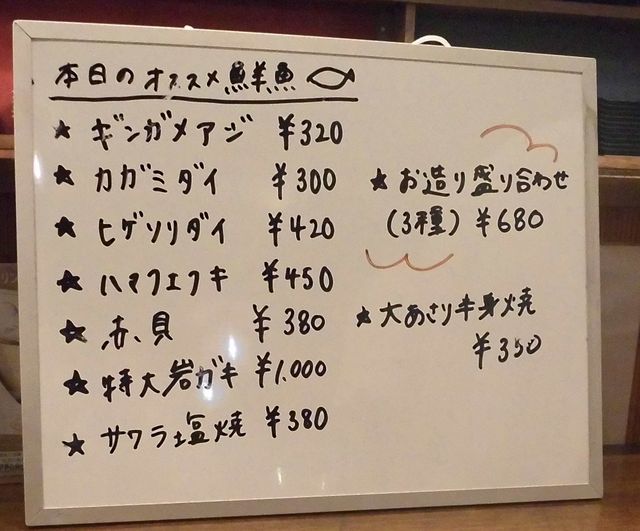 本日のオススメ鮮魚
★ ギンガメアジ ¥320
★ カガミダイ ¥300
★ ヒゲソリダイ ¥420
★ ハマフエフキ ¥450
★ 赤貝 ¥380
★ 特大岩ガキ ¥1,000
★ サワラ塩焼 ¥380
★ お造り盛り合わせ
(3種) ¥680
★ 大あさり半身焼
¥350